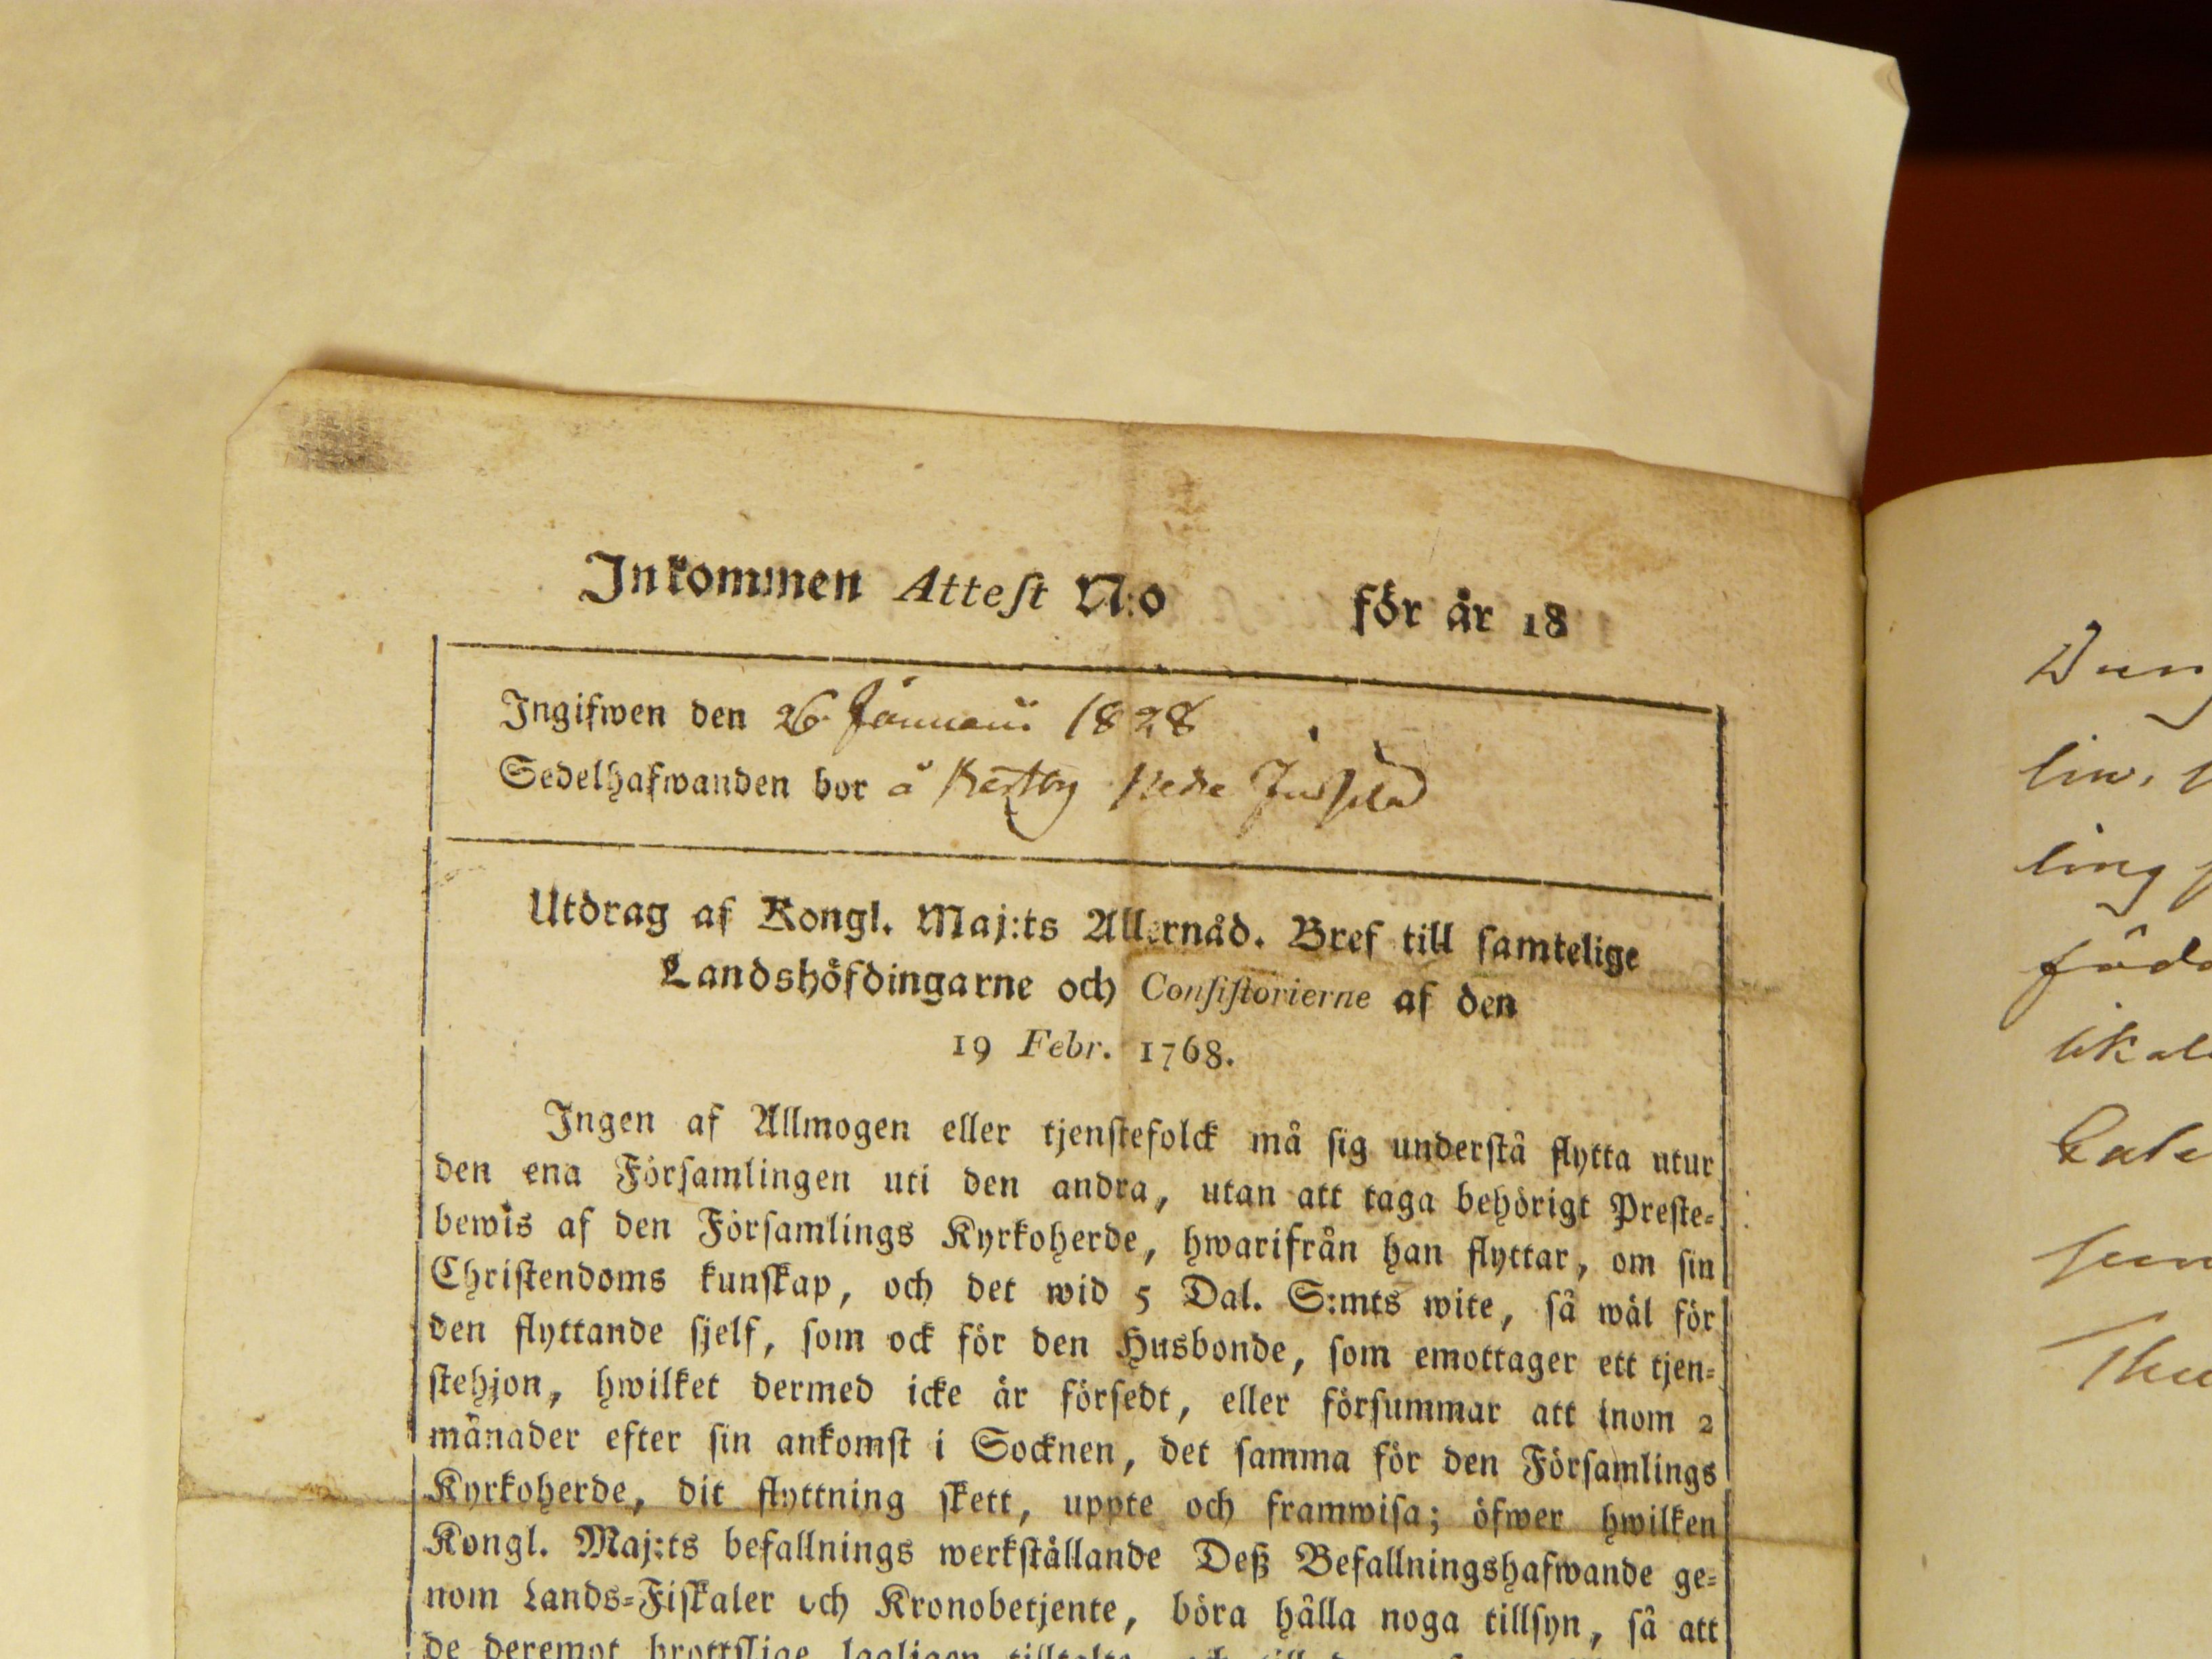 Inkommen Attest N:o för år 18
Ingifwen den 26 Januarii 1828
Sedelhafwanden bor å
Utdrag af Kongl. Maj:ts Allernåd. Bref till samtelige
Landshöfdingarne och Consistorierne af den
19 Febr. 1768.
Ingen af Allmogen eller tjenstefolck må sig understå flytta utur
den ena Församlingen uti den andra, utan att taga behörigt Preste-
bewis af den Församlings Kyrkoherde, hwarifrån han flyttar, om sin
Christendoms kunskap, och det wid 5 Dal. S:mts wite, så wäl för
den flyttande sjelf, som ock för den Husbonde, som emottager ett tjen-
stehjon, hwilket dermed icke är försedt, eller försummar att inom 2
månader efter sin ankomst i Socknen, det samma för den Församlings
Kyrkoherde, dit flyttning skett, uppte och framwisa; öfwer hwilken
Kongl. Maj:ts befallnings werkställande Deß Befallningshafwande ge-
nom Lands-Fiskaler och Kronobetjente, böra hålla noga tillsyn, så att
de deremot brottslige lagligen